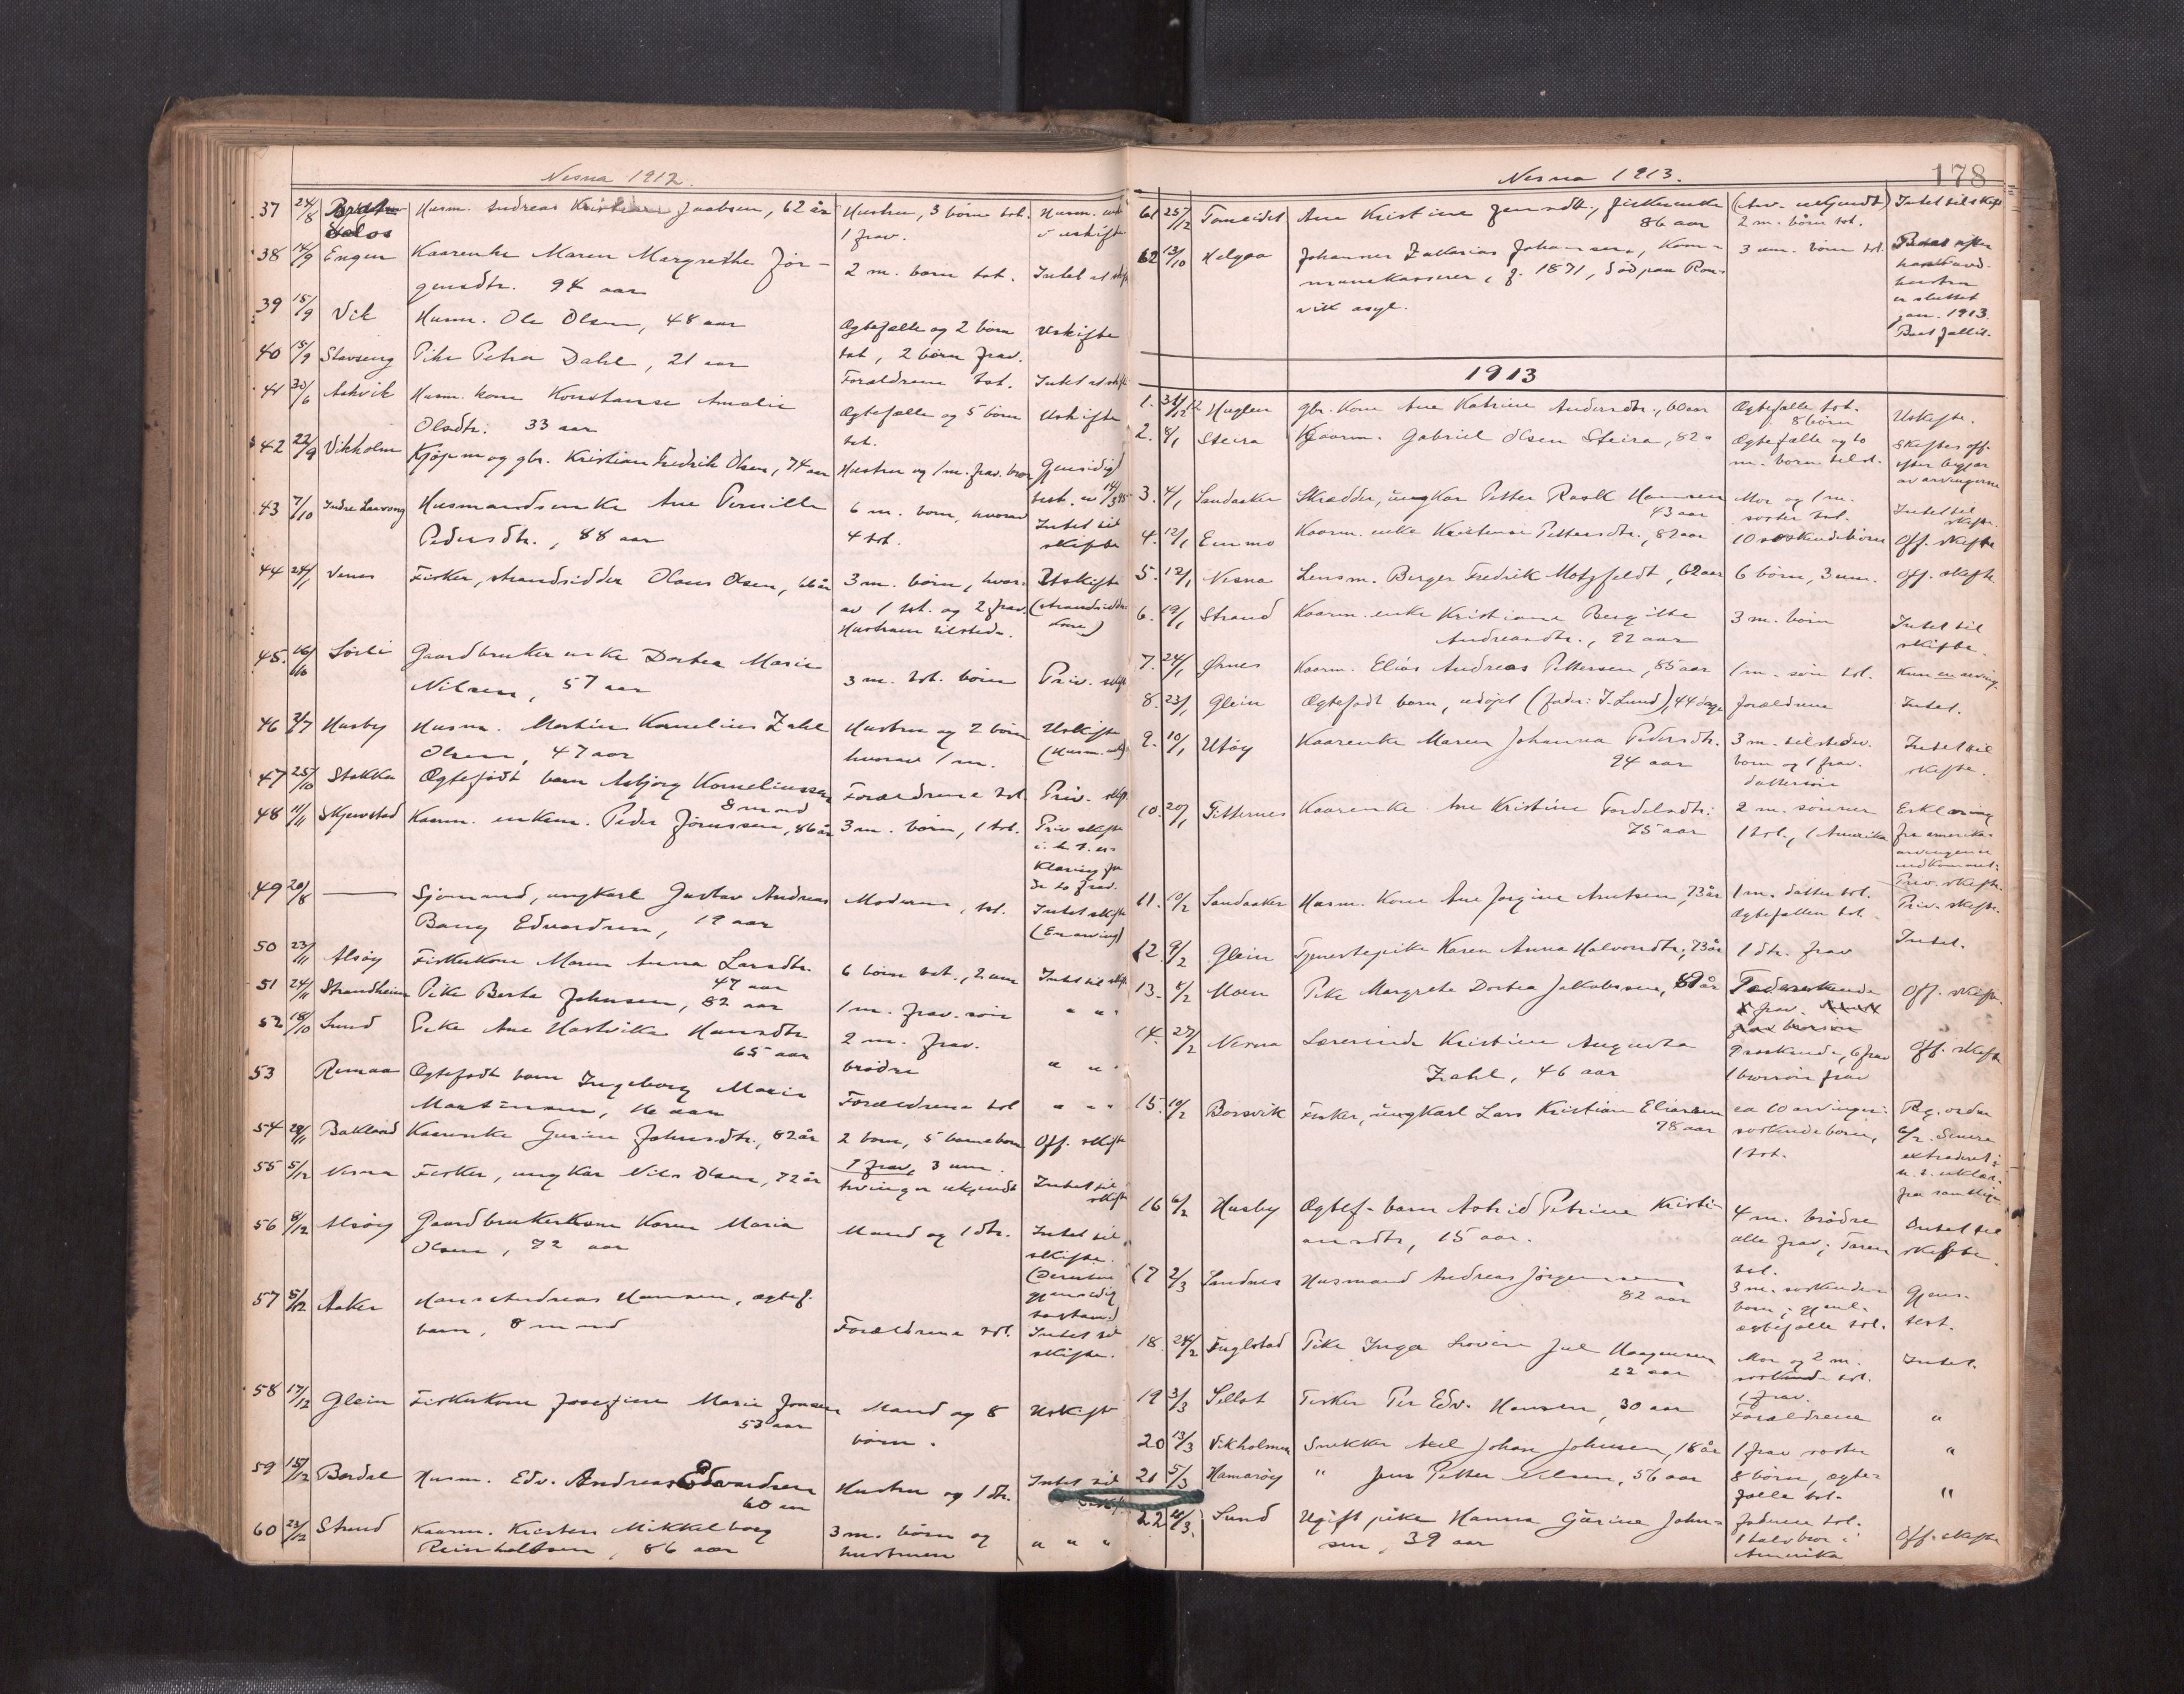 Nesna 1912.
37 24/8 Husm. Andreas Kristian Jacobsen, 62 år Hustru, 3 børn tst. Husm.
1 frav. uskifte
38 14/9 Engen Kaarenke Maren Margrethe Jør- 2 m. børn tst. Intet at skifte
gensdtr. 94 aar
39 15/9 Vik Husm. Ole Olsen, 48 aar Ægtefælle og 2 børn Uskifte
tst, 2 børn frav.
40 15/9 Stavseng Pike Petra Dahl, 21 aar Forældrene tst. Intet at skifte
41 30/6 Aakvik Husm. kone Konstanse Amalie Ægtefælle og 5 børn Uskifte
Olsdtr. 33 aar tst.
42 22/9 Vikholm Kjøpm og gbr. Kristian Fredrik Olsen, 74 aar Hustru og 1 m. frav. bror Gjensidig
test.
43 7/10 Indre Laavong Husmandsenke Ane Pernille 6 m. børn, hvorav Intet til
Pedersdtr., 88 aar 4 tst. skifte
44 24/1 Venes Fisker, strandsidder Olaus Olsen, 66 år 3 m. børn, hvor- Uskifte
av 1 tst. og 2 frav. (strandsidder
Hustruen tilstede. kone)
45. 16/10 Sørli Gaardbruker enke Dortea Marie 3 m. tst. børn Priv. skifte
Nilsen, 57 aar
46 3/7 Husby Husm. Martin Kornelius Zahl Hustru og 2 børn Uskifte
Olsen, 47 aar hvorav 1 m. (Husm.
47 25/10 Stokka Ægtefødt barn Asbjørg Korneliussen Forældrene tst. Priv. skifte
8 mnd
48 11/11 Skjevstad Kaarm. enkem. Peder Jørnssen, 86 år 3 m. børn, 1 tst. Priv skifte
i. h. t. er-
klæring fra
de to frav.
49 20/8 — Sjømand, ungkarl Gustav Andreas Moderen, tst. Intet skifte
Bang Edvardsen, 19 aar (En arving)
50 23/11 Alsøy Fiskerkone Maren Anna Larsdtr. 6 børn tst., 2 um Intet til skifte
47 aar
51 24/11 Strandheim Pike Berta Johnsen, 82 aar 1 m. frav. søn " "
52 18/10 Sund Pike Ane Hartvika Hansdtr 2 m. frav.
65 aar brødre " "
53 Remaa Ægtefødt barn Ingeborg Marie Forældrene tst " "
Martinsen, 16 aar
54 28/11 Bakland Kaarenke Gurine Johnsdtr., 82 år 2 børn, 5 barnebørn Off. skifte
1 frav, 3 um.
55 5/12 Nesna Fisker, ungkar Nils Olsen, 72 år Arvinger ukjendt Intet til
skifte
56 8/12 Alsøy Gaardbrukerkone Karen Maria Mand og 1 dtr. Intet til
Olsen, 72 aar skifte.
(Desuten
gjensidig
testam.)
57 5/12 Aaker Hans Andreas Hansen, ægtef. Forældrene tst. Intet til
barn, 8 mnd skifte.
58 17/12 Glein Fiskerkone Josefine Marie Jonsen Mand og 8 Uskifte
53 aar børn.
59 15/12 Bardal Husm. Edv. Andreas Edvardsen Hustru og 1 dtr. Intet til
60 aar skifte
60 23/12 Strand Kaarm. Kristen Mikkelborg 3 m. børn og " " "
Reinholdtsen, 86 aar hustruen
Nesna 1913. 178
61 25/12 Tomeidet Ane Kristine Jensdtr., fiskerenke (Arv. ukjendt) Intet til skifte
86 aar 2 m. børn tst.
62 13/10 Helgaa Johannes Zakarias Johansen, kom- 3 um. børn tst. Boet efter
munekasserer, f. 1871, død paa Røn- hustru
vik asyl. er sluttet
jan. 1913.
Boet fallit.
1913
1. 31/12 12 Huglen gbr. kone Ane Katrine Andersdtr., 60 aar Ægtefælle tst. Uskifte.
8 børn
2. 8/1 Steira Kaarm. Gabriel Olsen Steira, 82 " Ægtefælle og 10 Skiftes off.
m. børn tilst. efter begjær
av arvingerne
3. 4/1 Sandaaker Skrædder, ungkar Petter Rask Hansen Mor og 1 m. Intet til
43 aar søster tst. skifte.
4. 12/1 Emmo Kaarm. enke Kristense Pettersdtr., 82 aar 10 søskendebørn Off. skifte
5. 12/1 Nesna Lensm. Berger Fredrik Motzfeldt, 62 aar 6 børn, 3 um. Off. skifte
6. 19/1 Strand Kaarm. enke Kristiane Bergitte 3 m. børn Intet til
Andreasdtr., 92 aar skifte.
7. 24/1 Ørnes Kaarm. Elias Andreas Pettersen, 85 aar 1 m. søn tst. Kun en arving.
8. 23/1 Glein Ægtefødt barn, udøpt (fader: J. Lund), 44 dage Forældrene Intet.
9. 10/1 Utøy Kaarenke Maren Johanna Pedersdtr. 3 m. tilstedev. Intet til
94 aar børn og 1 frav. skifte.
dattersøn
10. 20/1 Tetternes Kaarenke Ane Kristine Tordelsdtr. 2 m. sønner Erklæring
75 aar 1 tst., 1 Amerika fra amerika-
arvingen er
indkommet.
Priv. skifte.
11. 10/2 Sandaaker Husm. kone Ane Jørgine Arntsen, 73 år 1 m. datter tst. Priv. skifte.
Ægtefællen tst.
12. 9/2 Glein Tjenestepike Karen Anna Halvorsdtr., 73 år 1 dtr. frav Intet.
13. 8/2 Moen Pike Margrete Dortea Jakobssen, 81 år Off. skifte.
frav.
14. 27/2 Nesna Lærerinde Kristine Augusta 9 søskende, 6 frav Off. skifte
Zahl, 46 aar 1 brorsøn frav
15. 10/2 Borsvik Fisker, ungkarl Lars Kristian Eliassen ca 10 arvinger: Reg. ordre
78 aar søskendebørn, 6/2. Senere
1 tst. extraderet i
h. t. erklær.
fra samtlige
16 6/2 Husby Ægtef. barn Astrid Petrine Kristi- 4 m. brødre Intet til
ansdtr, 15 aar. alle frav; Faren skifte.
tst.
17 2/3 Sandnes Husmand Andreas Jørgensen 3 m. søskende- Gjens.
82 aar børn; gjenl. test.
ægtefælle tst.
18. 24/2 Fuglstad Pike Inga Lovise Jul Haagensen Mor og 2 m. Intet.
22 aar søskende tst.
1 frav.
19 3/3 Fisker Per Edv. Hansen, 30 aar Forældrene "
20 13/3 Vikholmen Snekker Axel Johan Johnsen, 18 år 1 frav søster "
21 5/3 Hamarøy " Jens Petter Nilsen, 56 aar 8 børn, ægte- "
fælle tst.
22 4/3 Sund Ugift pike Hanna Gurine John- Faderen tst. Off. skifte
sen, 39 aar 1 halvbror i
Amerika